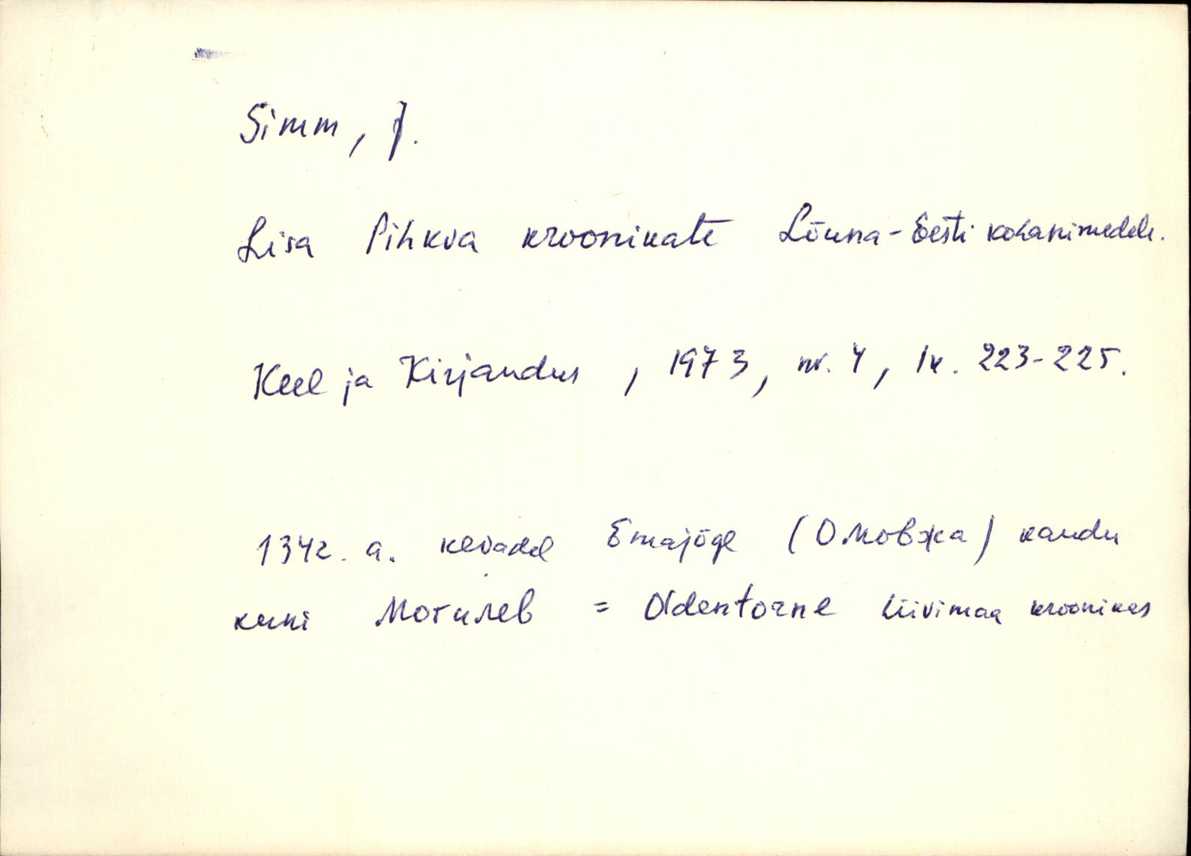 Simm, J.
Lisa Pihkva kroonikate Lõuna-Eesti kohanimedele.
Keel ja Kirjandus, 1973, nr. 4, lk. 223-225.
1342. a. kevadel Emajõge (Омовжа) kaudu
kuni Могилев = Oldentorne Liivimaa kroonikas